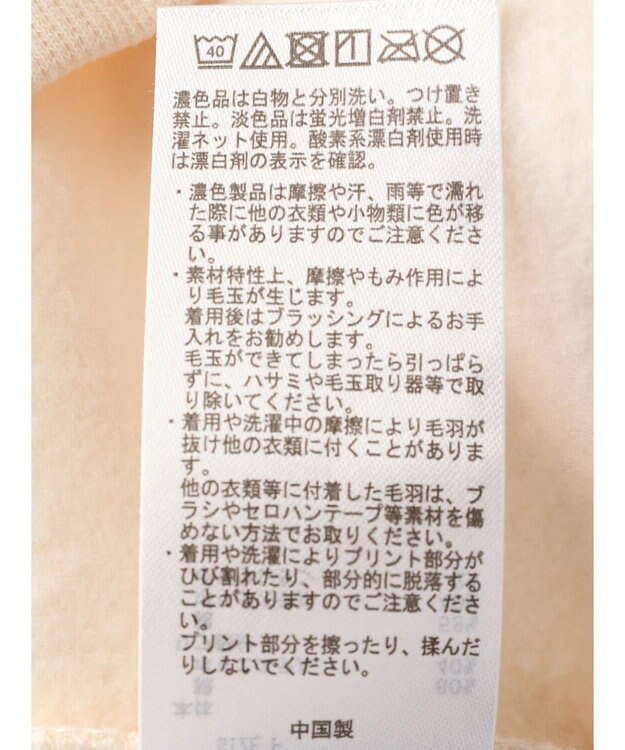 40
濃色品は白物と分別洗い。つけ置き
禁止。淡色品は蛍光増白剤禁止。洗
濯ネット使用。酸素系漂白剤使用時
は漂白剤の表示を確認。
・濃色製品は摩擦や汗、雨等で濡れ
た際に他の衣類や小物類に色が移
る事がありますのでご注意くださ
い。
・素材特性上、摩擦やもみ作用によ
り毛玉が生じます。
着用後はブラッシングによるお手
入れをお勧めします。
毛玉ができてしまったら引っぱら
ずに、ハサミや毛玉取り器等で取
り除いてください。
・着用や洗濯中の摩擦により毛羽が
抜け他の衣類に付くことがありま
す。
他の衣類等に付着した毛羽は、ブ
ラシやセロハンテープ等素材を傷
めない方法でお取りください。
・着用や洗濯によりプリント部分が
ひび割れたり、部分的に脱落する
ことがありますのでご注意くださ
い。
プリント部分を擦ったり、揉んだ
りしないでください。
中国製